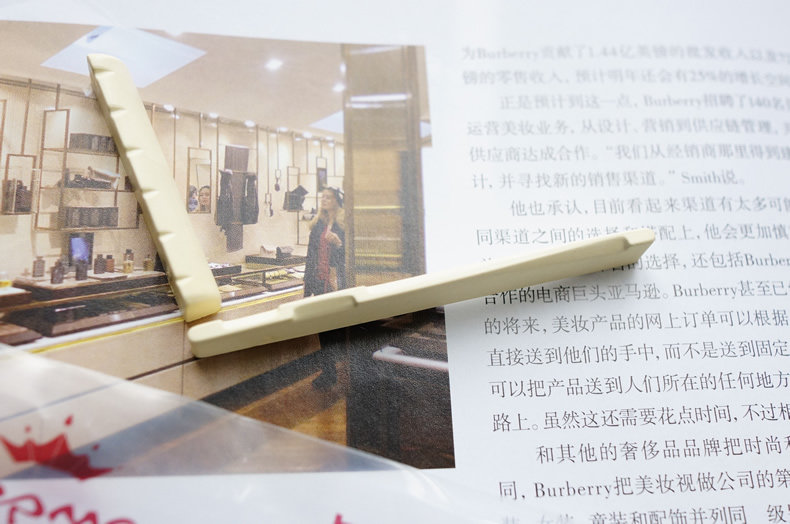 为Burberry贡献了1.44亿美镑的批发收入以及
镑的零售收入，预计明年还会有25%的增长空间
正是预计到这一点，Burberry招聘了140名
运营美妆业务，从设计、营销到供应链管理，
供应商达成合作。“我们从经销商那里得到
计，并寻找新的销售渠道。”Smith说。
他也承认，目前看起来渠道有太多可
同渠道之间的选择和搭配上，他会更加慎
的选择，还包括Burber
合作的电商巨头亚马逊。Burberry甚至已
的将来，美妆产品的网上订单可以根据
直接送到他们的手中，而不是送到固定
可以把产品送到人们所在的任何地方
路上。虽然这还需要花点时间，不过
和其他的奢侈品品牌把时尚和
同，Burberry把美妆视做公司的第
童装和配饰并列同 级